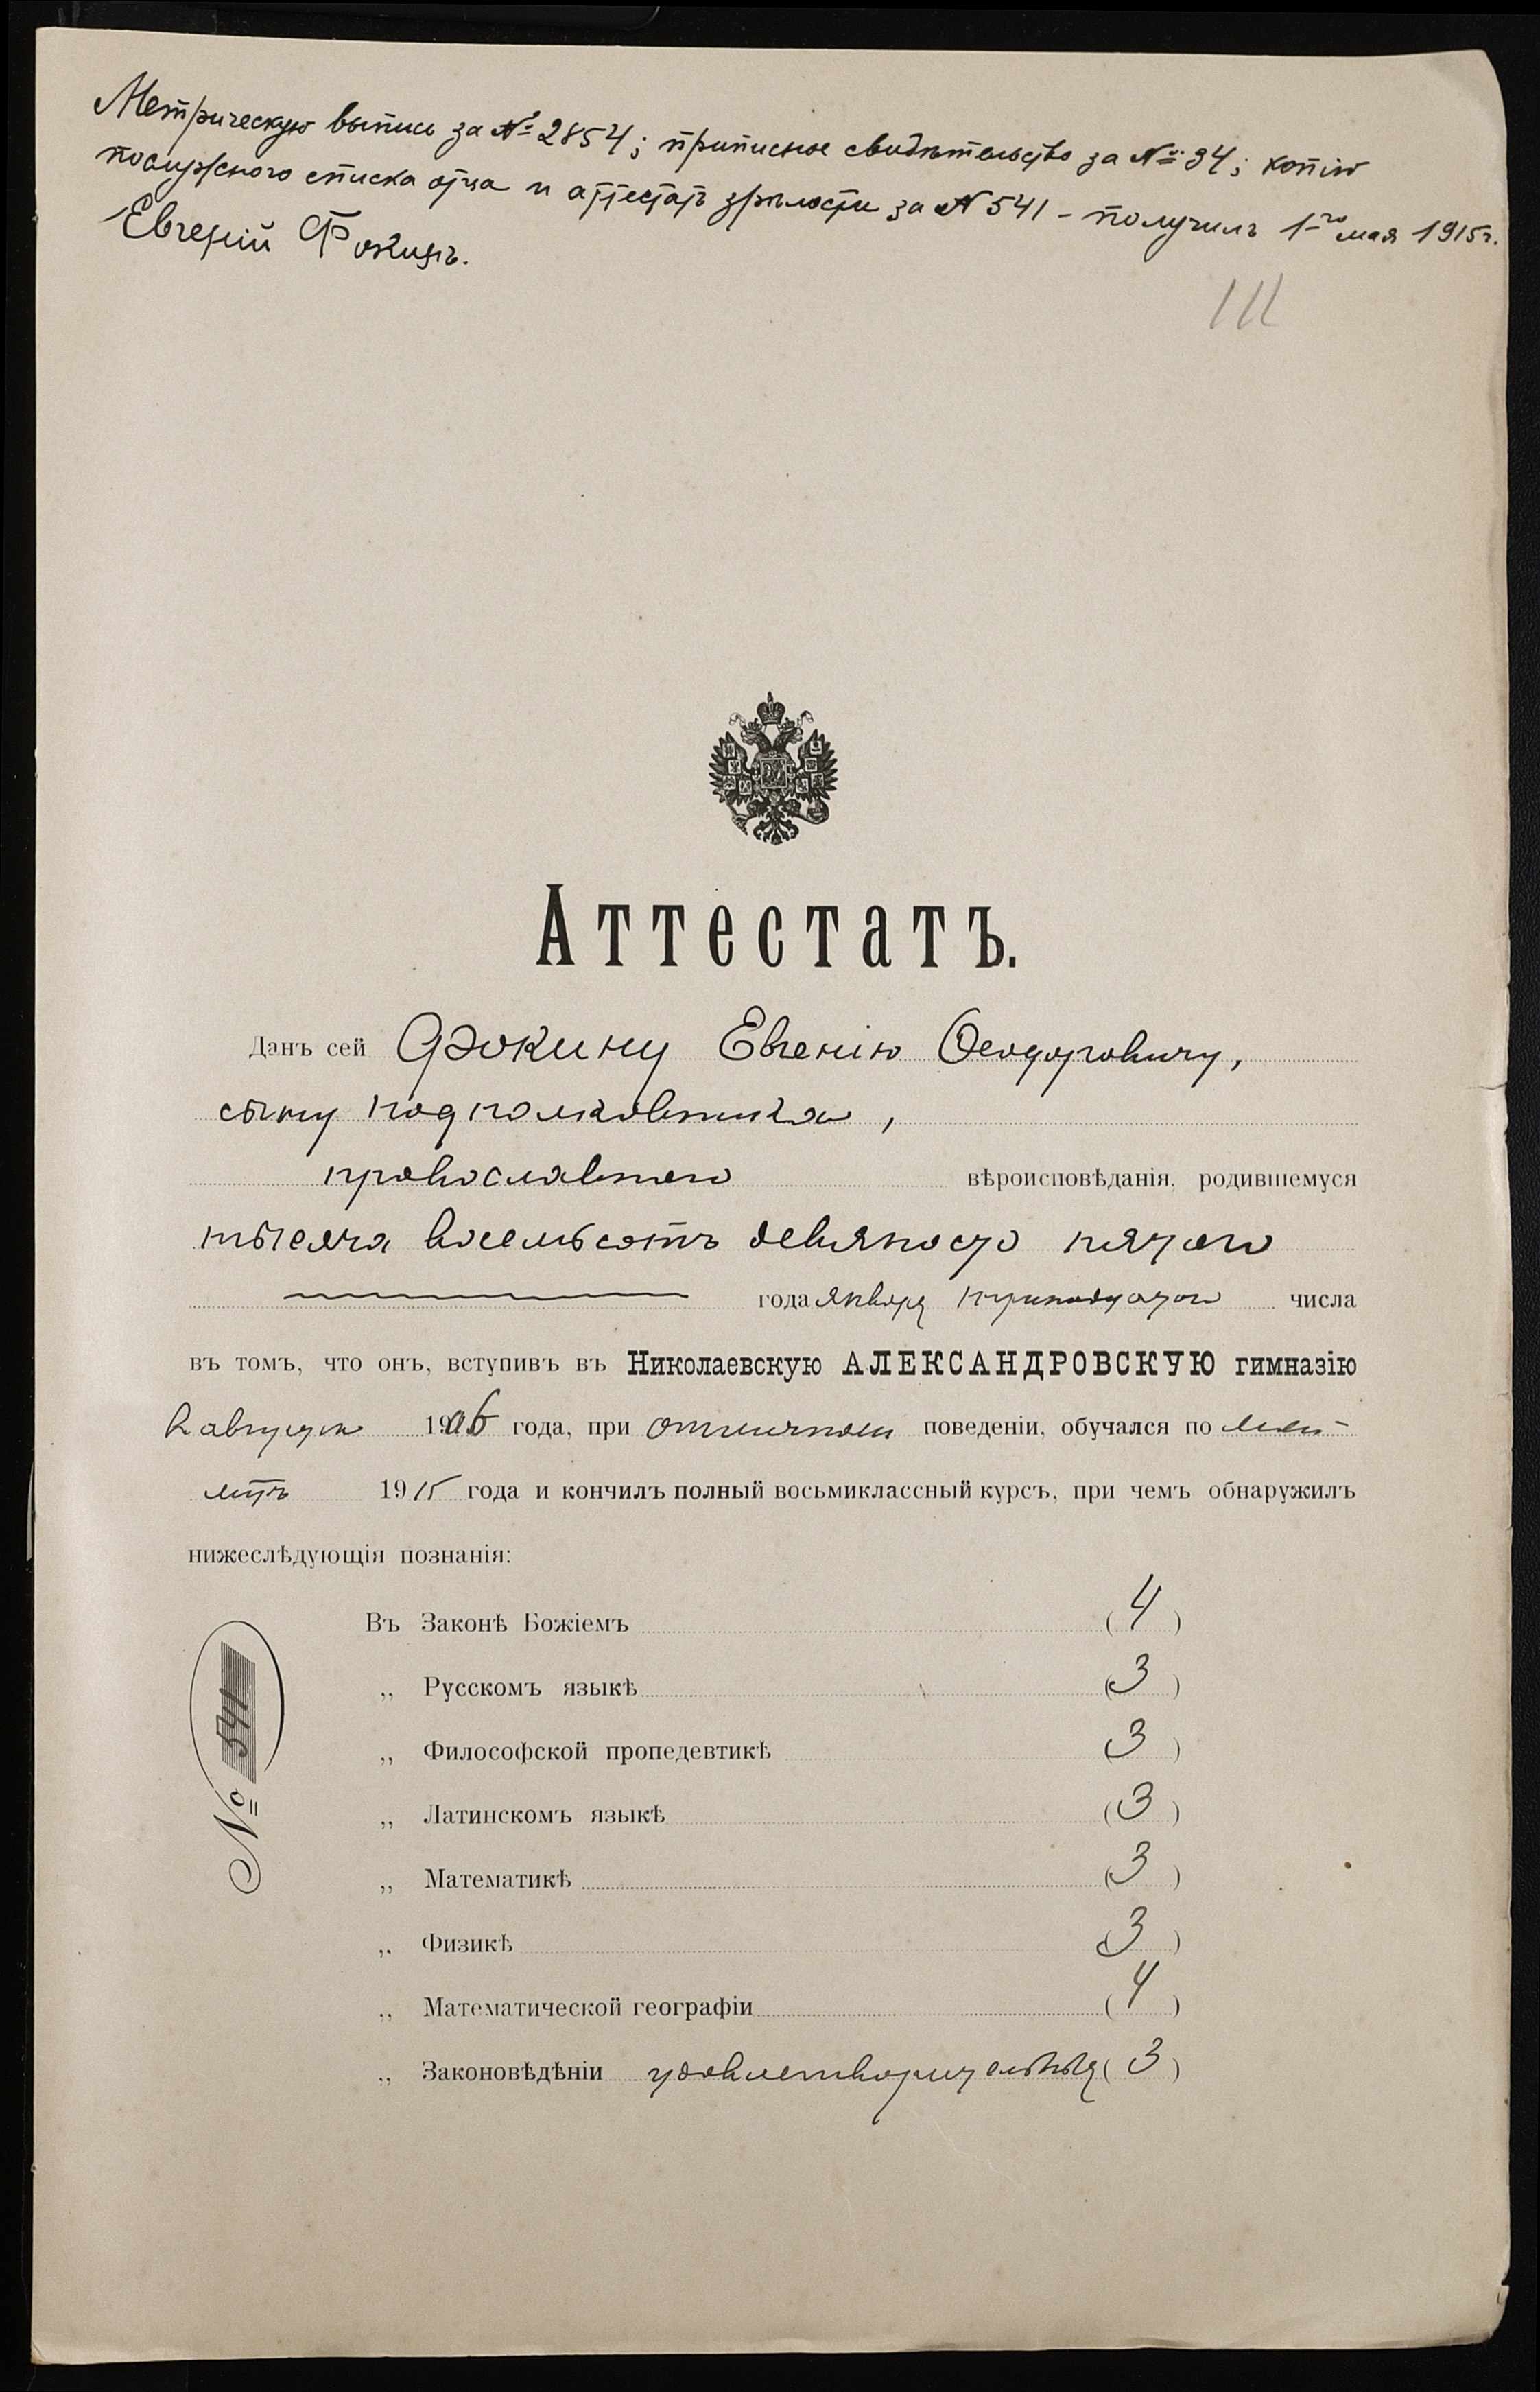 Метрическую выпись за № 2854; приписное свидѣтельство за № 94; копію
послужного списка отца и аттестатъ зрѣлости за № 541 – получилъ 1-го мая 1915г.
Евгеній Фокинъ.
Аттестатъ.
Данъ сей Фокину Евгенію Ѳеодоровичу,
сыну подполковника,
православнаго вѣроисповѣданія, родившемуся
тысяча восемьсотъ девяносто пятаго
года января тринадцатаго числа
въ томъ, что онъ, вступивъ въ Николаевскую АЛЕКСАНДРОВСКУЮ гимназію
августа 1906 года, при отличномъ поведеніи, обучался по
1915 года и кончилъ полный восьмиклассный курсъ, при чемъ обнаружилъ
нижеслѣдующія познанія:
Въ Законѣ Божіемъ (4)
„ Русскомъ языкѣ (3)
„ Философской пропедевтикѣ (3)
„ Латинскомъ языкѣ (3)
„ Математикѣ (3)
„ Физикѣ (3)
„ Математической географіи (4)
„ Законовѣдѣніи удовлетворительныя (3)
№ 541